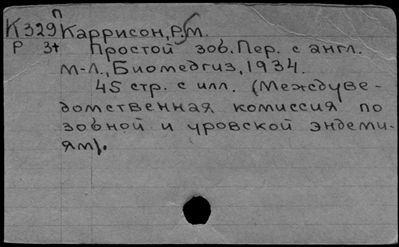 П
К329 Каррисон, Р. М.
Р 3+ Простой зоб. Пер. с англ.
М-Л., Биомедгиз, 1934.
45 стр. с илл. (Междуве-
домственная комиссия по
зобной и уровской эндеми-
ям).